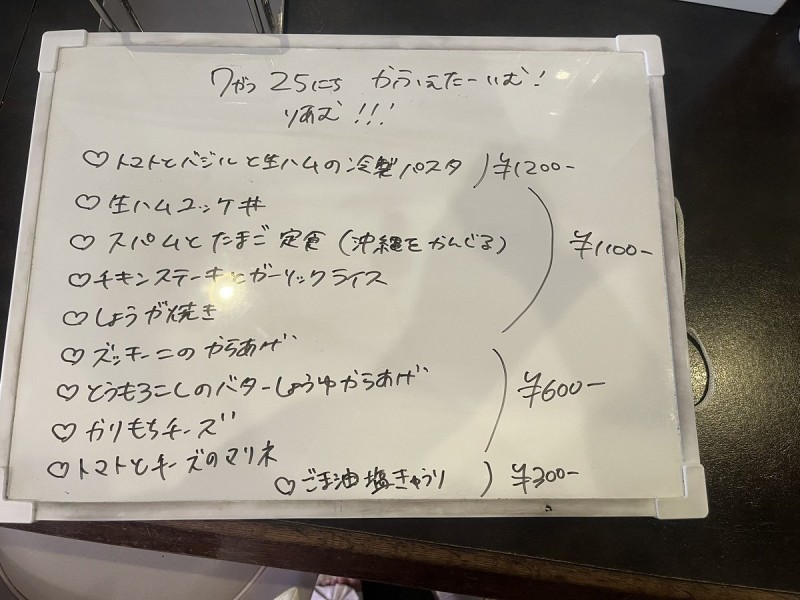 7がつ 25にち かふぇたーいむ!
りあむ!!!
♡トマトとバジルと生ハムの冷製パスタ ) ¥1200-
♡生ハムユッケ丼
♡スパムとたまご定食(沖縄をかんじる) ¥1100-
♡チキンステーキとガーリックライス
♡しょうが焼き
♡ズッキーニのからあげ
♡とうもろこしのバターしょうゆからあげ ¥600-
♡かりもちチーズ
♡トマトとチーズのマリネ
♡ごま油塩きゅうり ) ¥300-